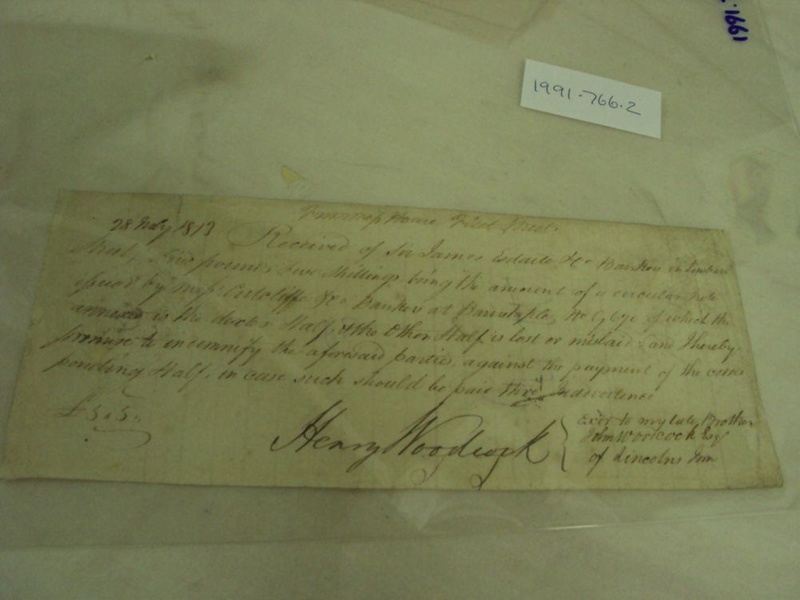 .1661
1991.766.2
House Fleet Street
28 July 1813 Received of Sir James Esdaile & Co Bankers in Lombard
Street, Five pounds Five Shillings being the amount of a circular note
issued by Messrs Cutcliffe & Co Bankers at Barnstaple, No of which the
annexed is the Half, & the other Half is lost or mislaid, and I hereby
promise to indemnify the aforesaid parties, against the payment of the corres
ponding Half, in case such should be paid thro' inadvertence
£5.5.
Henry Woodcock
Exor to my late Brother
John Woodcock Esq
of Lincolns Inn